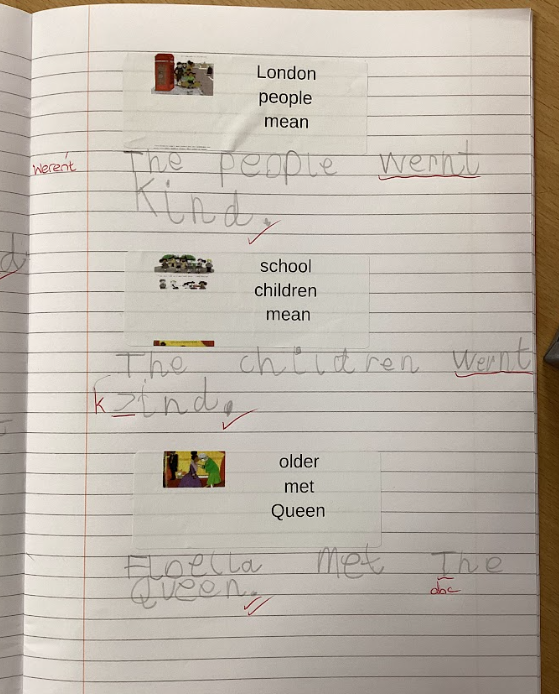 London
people
mean
weren't
The people wernt
Kind.
school
children
mean
The children wernt
k
ind.
older
met
Queen
Floella Met The
abc
Queen.